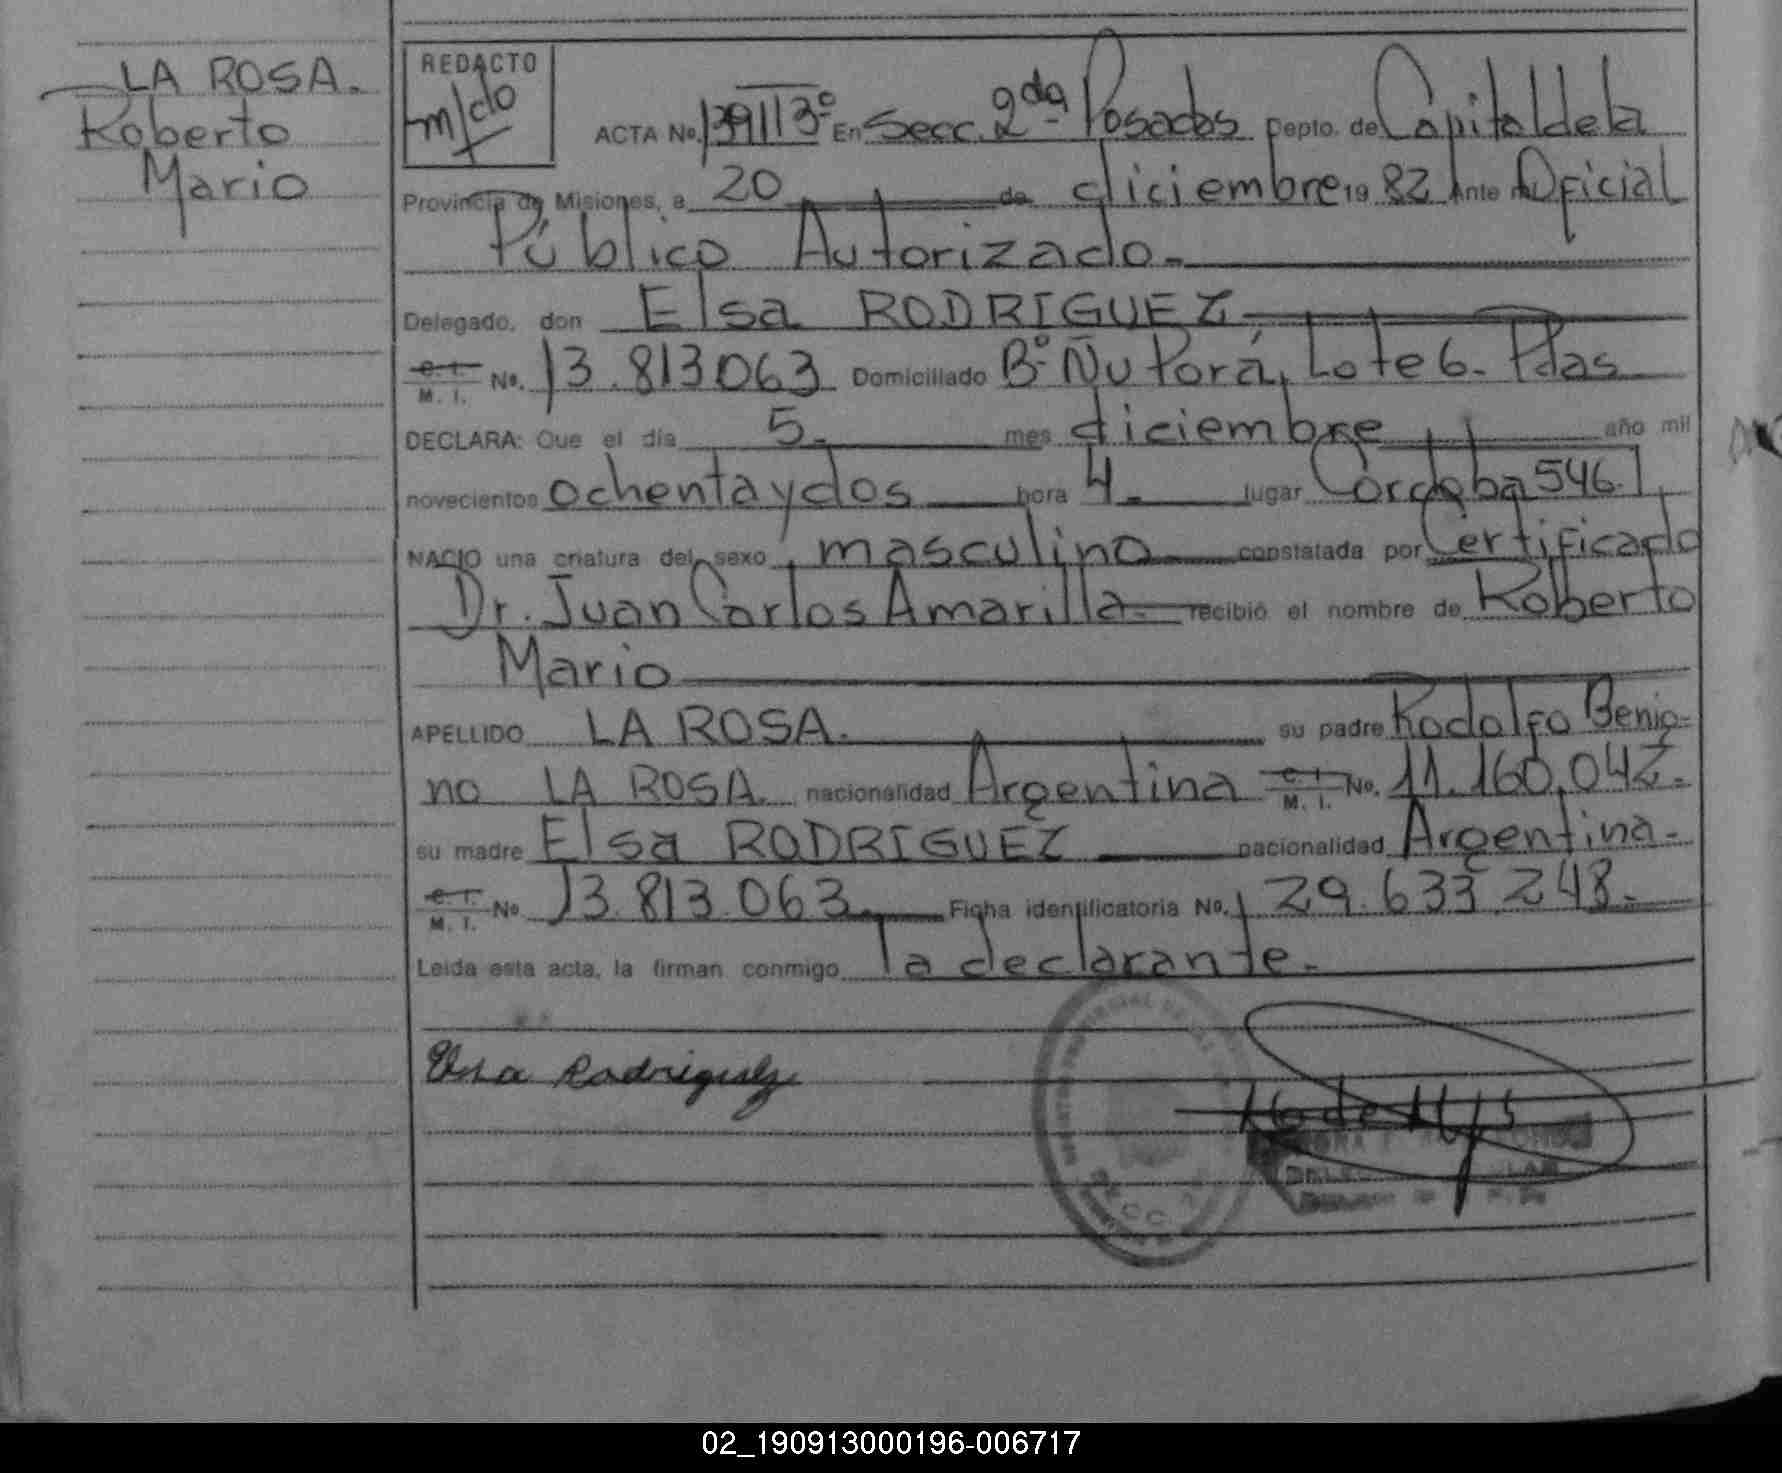 LA ROSA.
Roberto
Mario
REDACTO
m/do
ACTA No. 1391 13º En Secc. 2da Posadas Depto. de Capital de la
Provincia de Misiones, a 20 de diciembre 19 82 Ante mi Oficial
Público Autorizado.-
Delegado, don Elsa RODRIGUEZ
C. I. M. I. No. 13.813063 Domiciliado Bº Ñu Porá, Lote 6. Pdas
DECLARA: Que el día 5. mes diciembre año mil
novecientos ochenta y dos hora 4. lugar Cordoba 546
NACIO una criatura del sexo masculino constatada por Certificado
Dr. Juan Carlos Amarilla. recibió el nombre de Roberto
Mario
APELLIDO LA ROSA. su padre Rodolfo Benig-
no LA ROSA. nacionalidad Argentina C. I. M. I. No. 11.160.042.
su madre Elsa RODRIGUEZ nacionalidad Argentina.
C. I. M. I. No 13.813.063. Ficha identificatoria No. 29.633.248.-
Leída esta acta, la firman conmigo la declarante.-
Elsa Rodriguez
SECC.
02_190913000196-006717